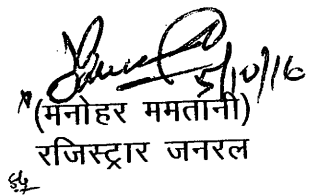 5/10/16
(मनोहर ममतानी)
रजिस्ट्रार जनरल